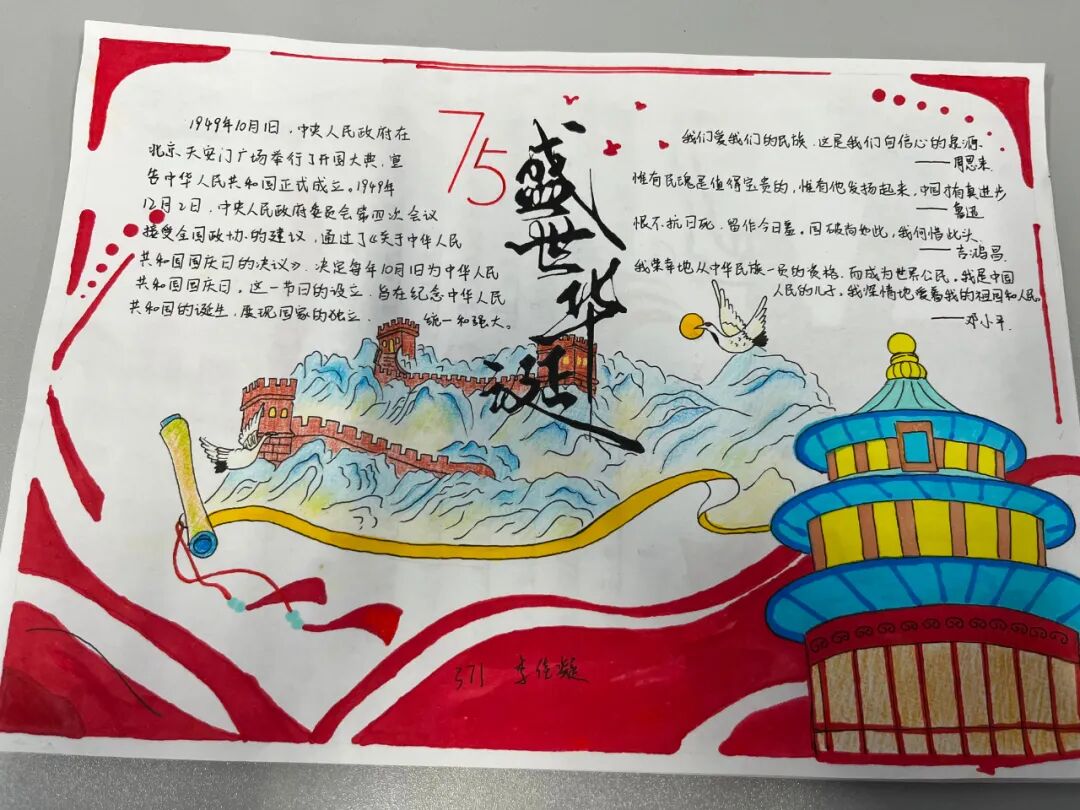 1949年10月1日，中央人民政府在
北京天安门广场举行了开国大典，宣
告中华人民共和国正式成立。1949年
12月2日，中央人民政府委员会第四次会议
接受全国政协的建议，通过了《关于中华人民
共和国国庆日的决议》，决定每年10月1日为中华人民
共和国国庆日。这一节日的设立，旨在纪念中华人民
共和国的诞生，展现国家的独立、统一和强大。
75
盛世华诞
我们爱我们的民族，这是我们自信心的泉源。
——周恩来
惟有民魂是值得宝贵的，惟有他发扬起来，中国才有真进步
——鲁迅
恨不抗日死，留作今日羞。国破尚如此，我何惜此头。
——吉鸿昌
我荣幸地从中华民族一员的资格，而成为世界公民。我是中国
人民的儿子。我深情地爱着我的祖国和人民。
——邓小平
371 李佳凝